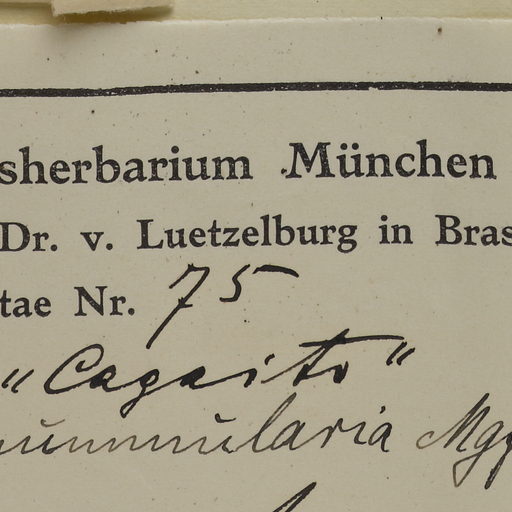 sherbarium München
Dr. v. Luetzelburg in Bras
tae Nr. 75
"Cagaito"
nummularia